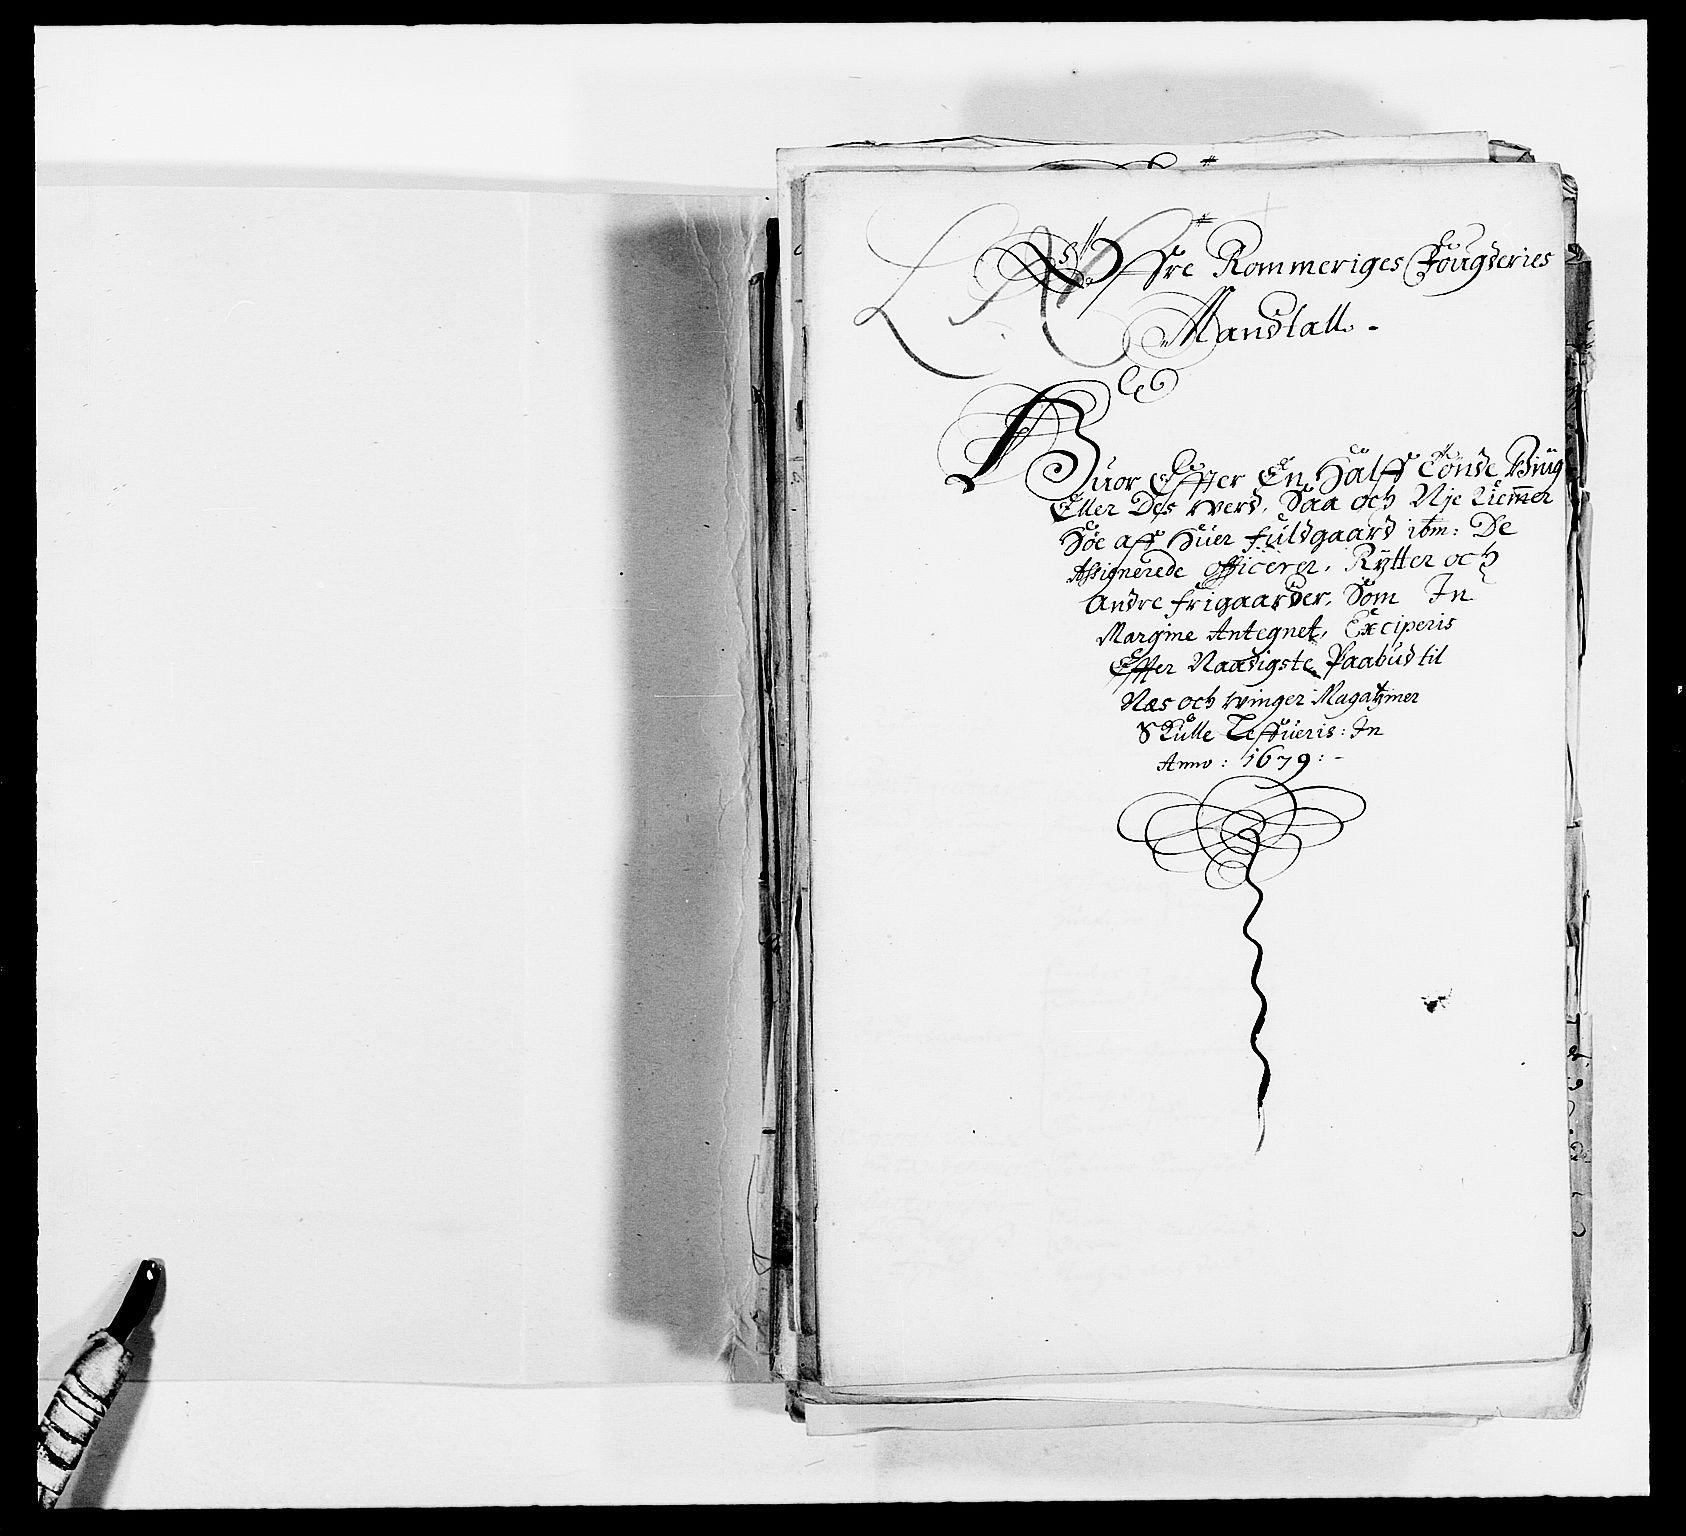 Øffre Rommeriges Fougderies
Mandtall. -
Huor Effter En Half Tønde Biug
Eller Des werd, Saa och Nje Liemer
Høe aff Huer fuldgaard ibm: De
Assignerede officerer, Rytter och
Andre frigaarder, Som In
Margine Antegnet, Exciperis
Effter Naadigste Paabud til
Næs och winger Magatziner
Skulle Leffueris: In
Anno: 1679: -